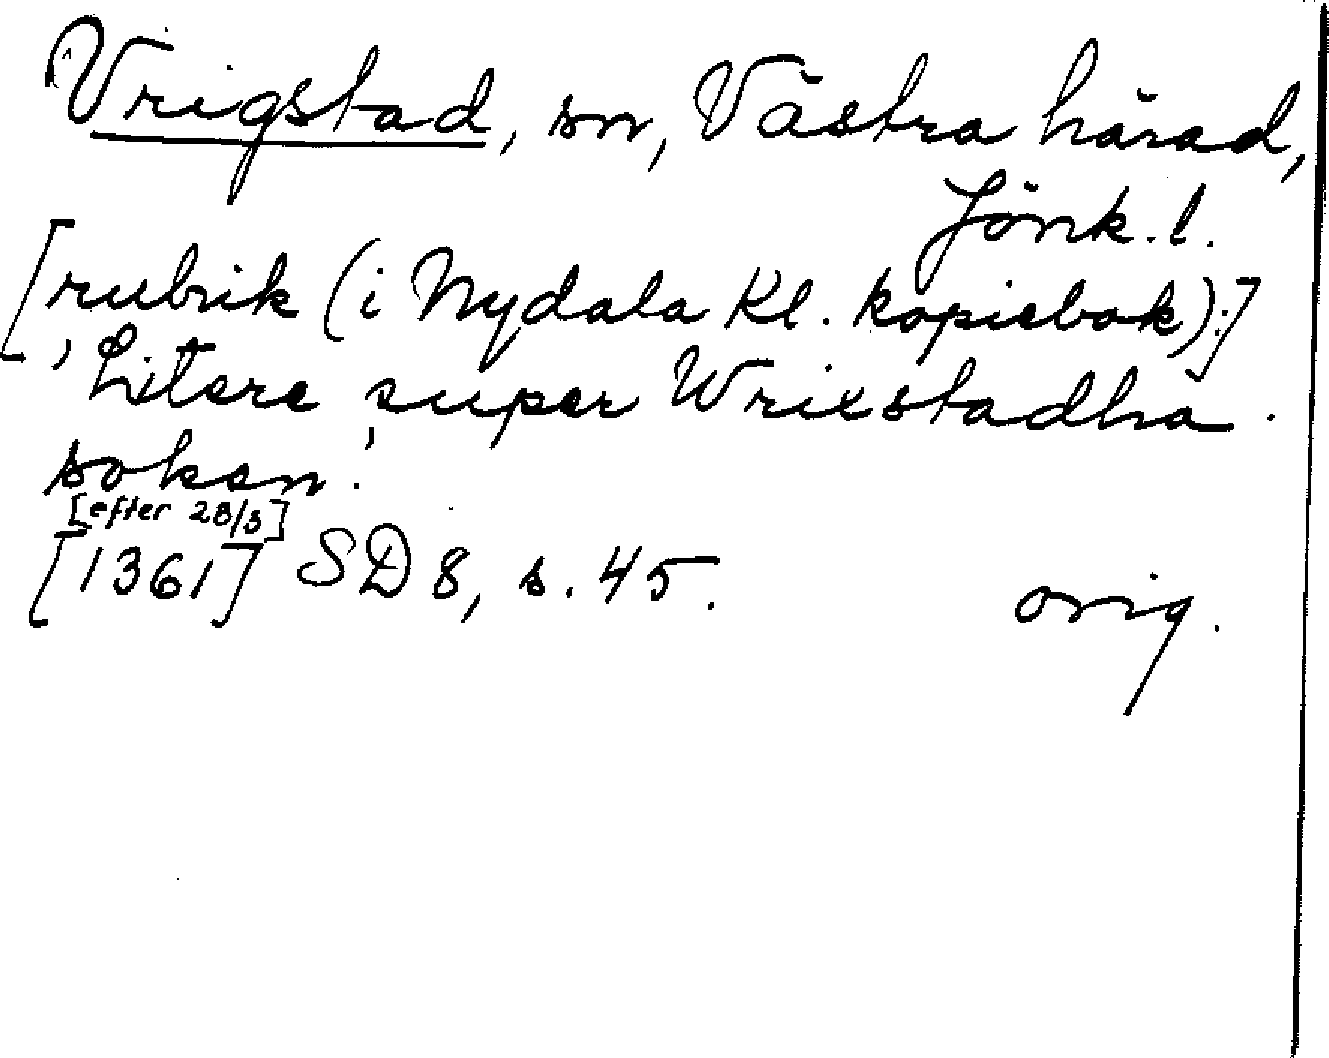 Vrigstad, sn, Västra härad,
Jönk. l.
[rubrik (i Nydala Kl. kopiebok):]
'Litere super Wrixstadha
soken'.
[efter 28/3]
[1361] SD 8, s. 45.
orig.